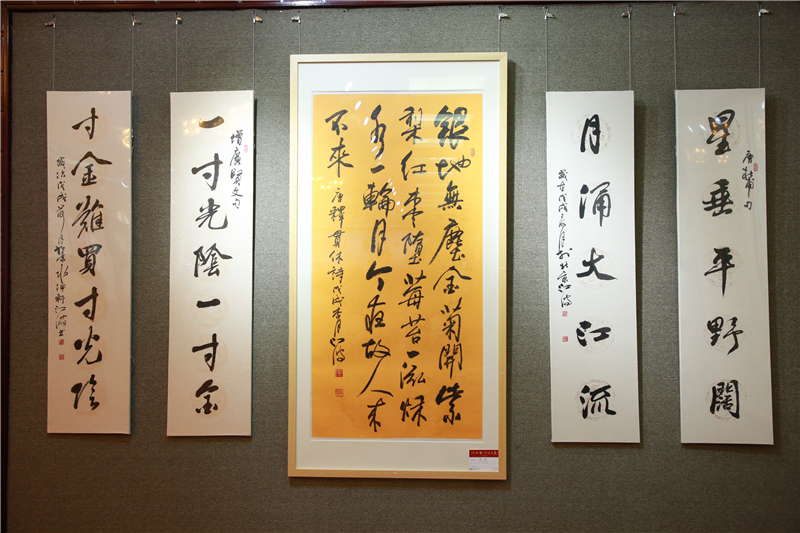 星垂平野闊
唐杜甫句
月涌大江流
銀地無塵金菊開紫
梨紅棗墮莓苔一泓秋
水一輪月今夜故人來
不來
唐釋貫休詩戊戌
江波
增廣賢文句
一寸光陰一寸金
寸金難買寸光陰
歲次戊戌